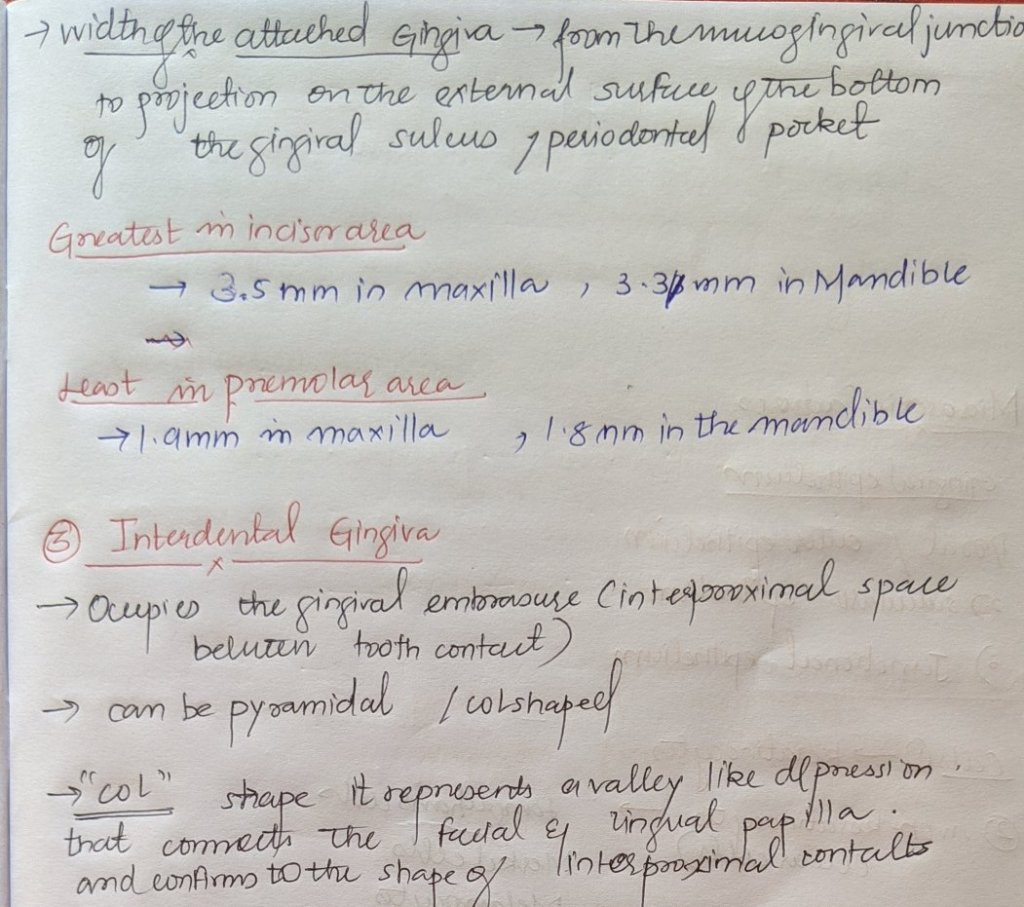 → width of the attached Gingiva → from the mucogingival junctio
to projection on the external surface of the bottom
of the gingival sulcus / periodontal pocket
Greatest in incisor area
→ 3.5 mm in maxilla , 3.3 mm in Mandible
→
Least in premolar area
→ 1.9mm in maxilla , 1.8 mm in the mandible
③ Interdental Gingiva
→ Ocupies the gingival embrasure (interproximal space
between tooth contact)
→ can be pyramidal / col shaped
→ "COL" shape it represents a valley like depression .
that connects the facial & lingual papilla .
and confirms to the shape of interproximal contacts